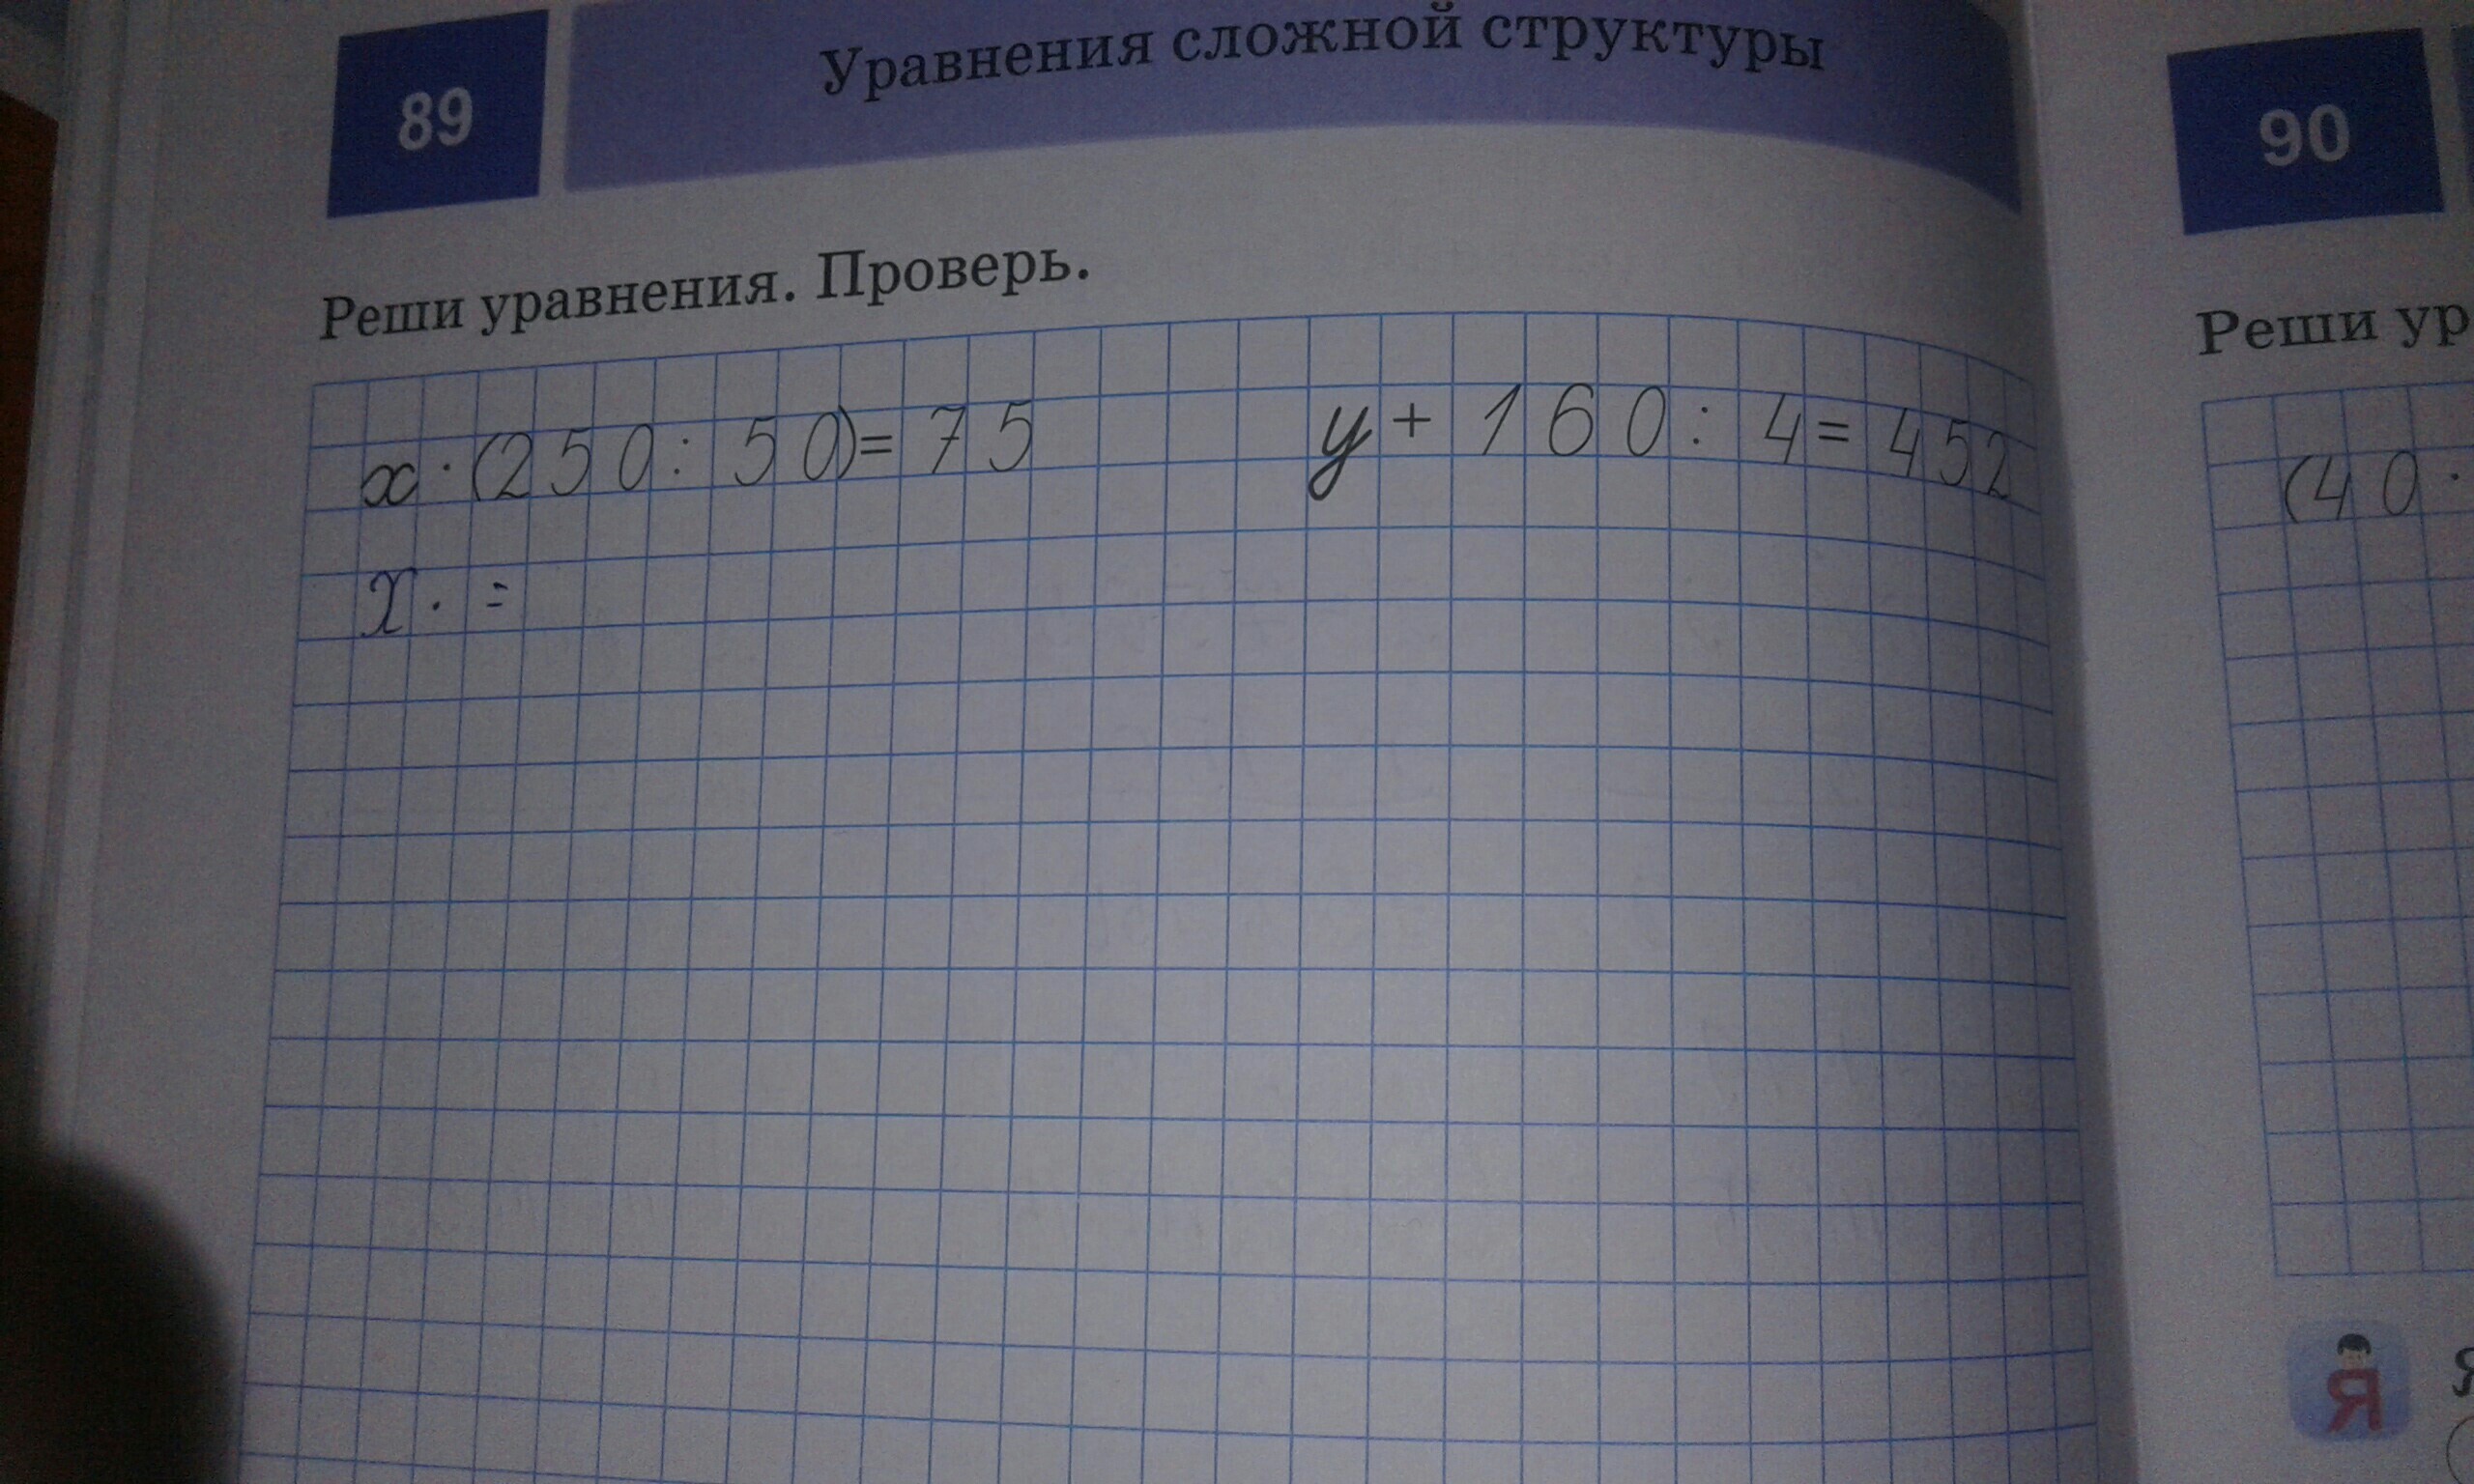 89
Уравнения сложной структуры
Реши уравнения. Проверь.
x · (250 : 50) = 75
y + 160 : 4 = 452
x · =
90
Реши ур
(40 ·
Я